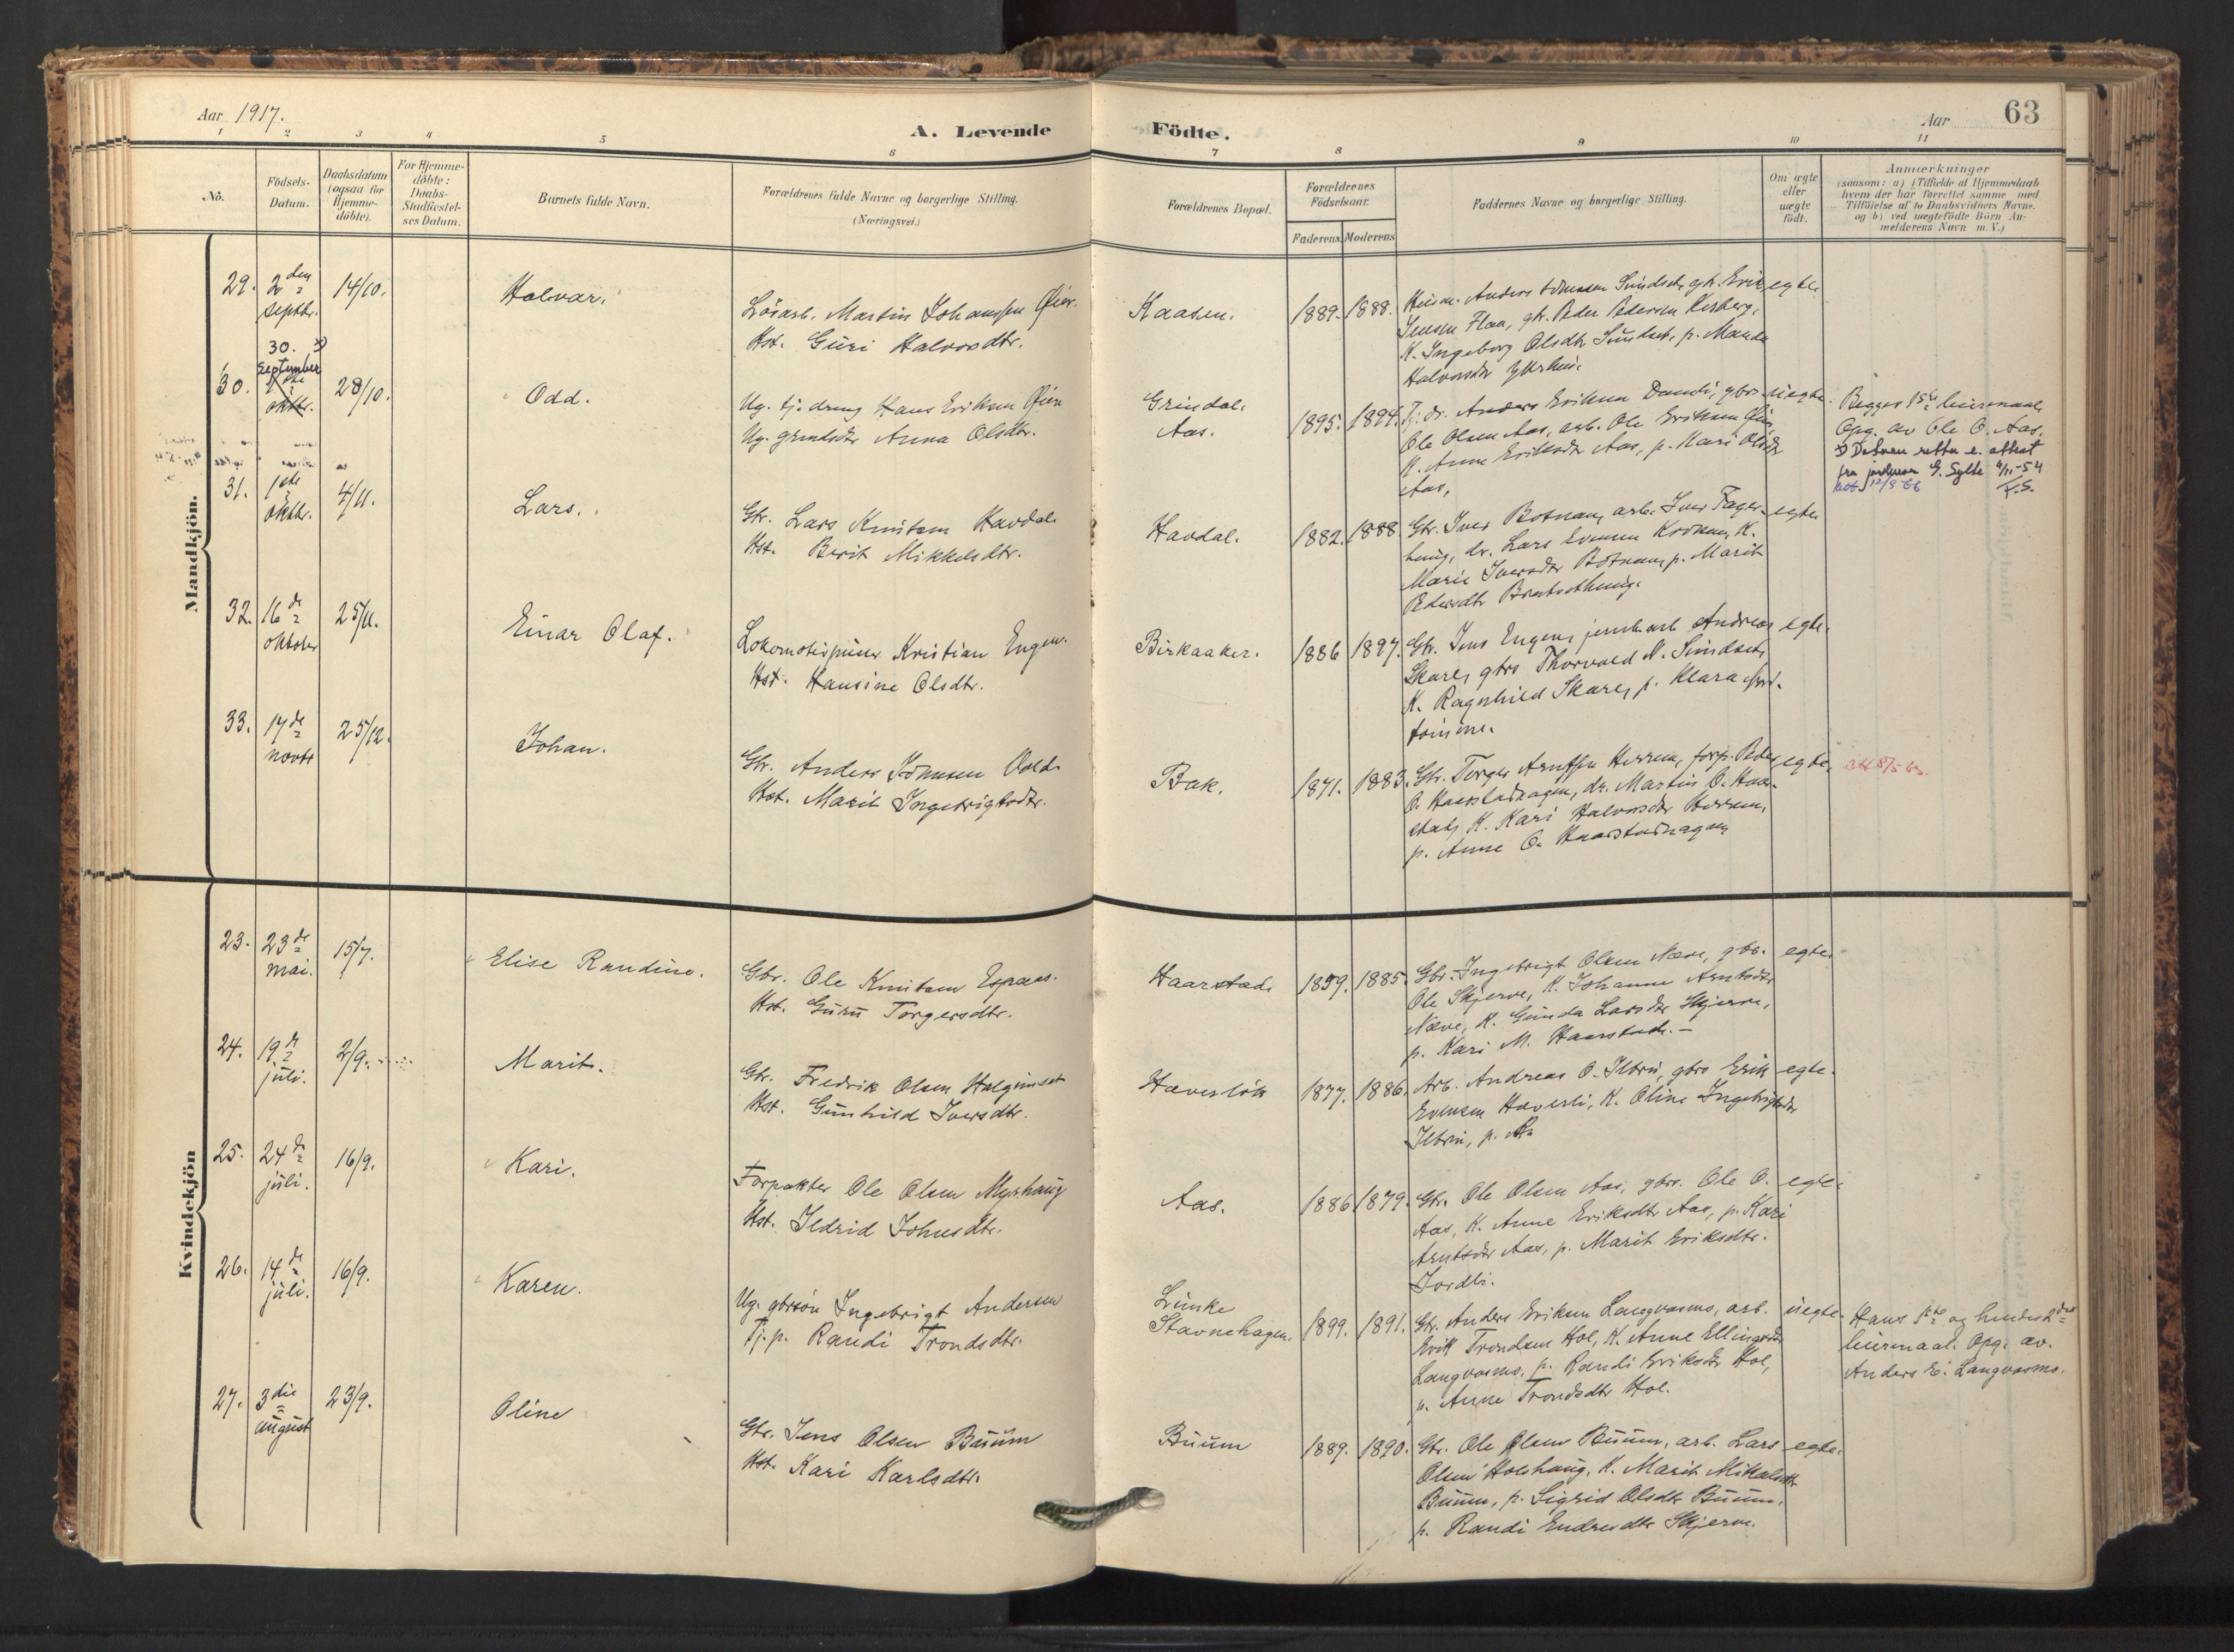 Aar 1917.
A. Levende Födte.
Aar
63
1 2 3 4 5 6 7 8 9 10 11
No.
Födsels-
Datum.
Daabsdatum
(ogsaa for
Hjemme-
döbte).
For Hjemme-
döbte:
Daabs-
Stadfæstel-
ses Datum.
Barnets fulde Navn.
Forældrenes fulde Navne og borgerlige Stilling.
(Næringsvei.)
Forældrenes Bopæl.
Forældrenes
Födselsaar.
Faderens. Moderens
Faddernes Navne og borgerlige Stilling.
Om ægte
eller
uægte
födt.
Anmærkninger
(saasom: a) i Tilfælde af Hjemmedaab
hvem der har forrettet samme med
Tilföielse af to Daabsvidners Navne.
og b) ved uægtefödte Börn An-
melderens Navn m. V.)
Mandkjön.
29. 2den septbr. 14/10. Halvar.
Lösarb. Martin Johanssen Öien.
Hst. Guri Halvorsdtr.
Kaasen. 1889. 1888.
Anders Sundset, gbr. Erik
Jensen Flaa, gbr. Peder Pedersen
K. Ingeborg Olsdtr Sundset, p. Manda
Halvorsdtr
egte.
30. 30. September oktbr. 28/10. Odd.
Ug. tj. dreng Hans Eriksen Öien
Ug. Anna Olsdtr.
Grindal.
Aas.
1895. 1894.
Tj. dr. Anders Eriksen gbr.
Ole Olsen Aas, arb. Ole Eriksen Öien
K. Anne Eriksdtr Aas, p. Kari Olsdtr
Aas.
uegte.
Begges 1ste leiermaal.
Opg. av Ole O. Aas.
Datoen rettet e. attest
fra jordmor G. Sylte 4/11-54
31. 1ste oktbr. 4/11. Lars.
Gbr. Lars Knutsen Havdal.
Hst. Berit Mikkelsdtr.
Havdal. 1882. 1888.
Gbr. Iver Botnan, arb. Iver Fager-
haug, dr. Lars Evensen K.
Marie Iversdtr Botnan, p. Marit
Pedersdtr
egte
32. 16de oktober 25/11. Einar Olaf.
Kristian Engen.
Hst. Hansine Olsdtr.
Birkaaker. 1886 1897.
Gbr. Jens Engen, Andreas
Skare, gbrs Thorvald N. Sundset,
K. Ragnhild Skare, p. Klara

egte.
33. 17de novbr 25/12. Johan.
Gbr. Anders Vold.
Hst. Marit Ingebrigtsdtr.
Bak. 1871. 1883.
Gbr. Torger Herrem, forp. Peder
O. Haarstadhagen, dr. Martin O. Haar-
stad, K. Kari Halvorsdtr Herrem,
p. Anne O. Haarstadhagen
egte.
Kvindekjön
23. 23de mai. 15/7. Elise Randine.
Gbr. Ole Knutsen Espaas.
Hst. Guru Torgersdtr.
Haarstad. 1859. 1885.
Gbr. Ingebrigt Olsen Næve, gbr.
Ole Skjerve, K. Johanne Arntsdtr
Næve, K. Gunda Larsdtr Skjerve,
p. Kari M. Haarstad. —
egte.
24. 19de juli. 2/9. Marit.
Gbr. Fredrik Olsen Halgunset
Hst. Gunhild Iversdtr.
1877. 1886.
Arb. Andreas O. Ilbru, gbrs Erik
Evensen Haverli, K. Oline Ingebrigtsdtr
Ilbru, p.
egte.
25. 24de juli. 16/9. Kari.
Forpakter Ole Olsen Myrhaug
Hst. Ildrid Johnsdtr.
Aas. 1886 1879.
Gbr. Ole Olsen Aas, gbrs. Ole O.
Aas, K. Anne Eriksdtr Aas, p. Kari
Arntsdtr Aas, p. Marit Eriksdtr.
Jordli.
egte.
26. 14de juli. 16/9. Karen.
Ug. gbrsön Ingebrigt Andersen
Tj. p. Randi Trondsdtr.
Stavnehagen. 1899. 1891.
Gbr. Anders Eriksen Langvasmo, arb.
Erik Trondsen Hol, K. Anne Ellingsdtr
Langvasmo, p. Randi Eriksdtr Hol,
p. Anne Trondsdtr Hol.
uegte.
Hans 1ste og hendes 2det
leiermaal. Opg. av.
Anders E. Langvasmo.
27. 3die august 23/9. Oline
Gbr. Jens Olsen Buum
Hst. Kari Karlsdtr.
Buum 1889. 1890.
Gbr. Ole Olsen Buum, arb. Lars
Olsen Holshaug, K. Marit Mikalsdtr
Buum, p. Sigrid Olsdtr Buum,
p. Randi Endresdtr Skjerve.
egte.